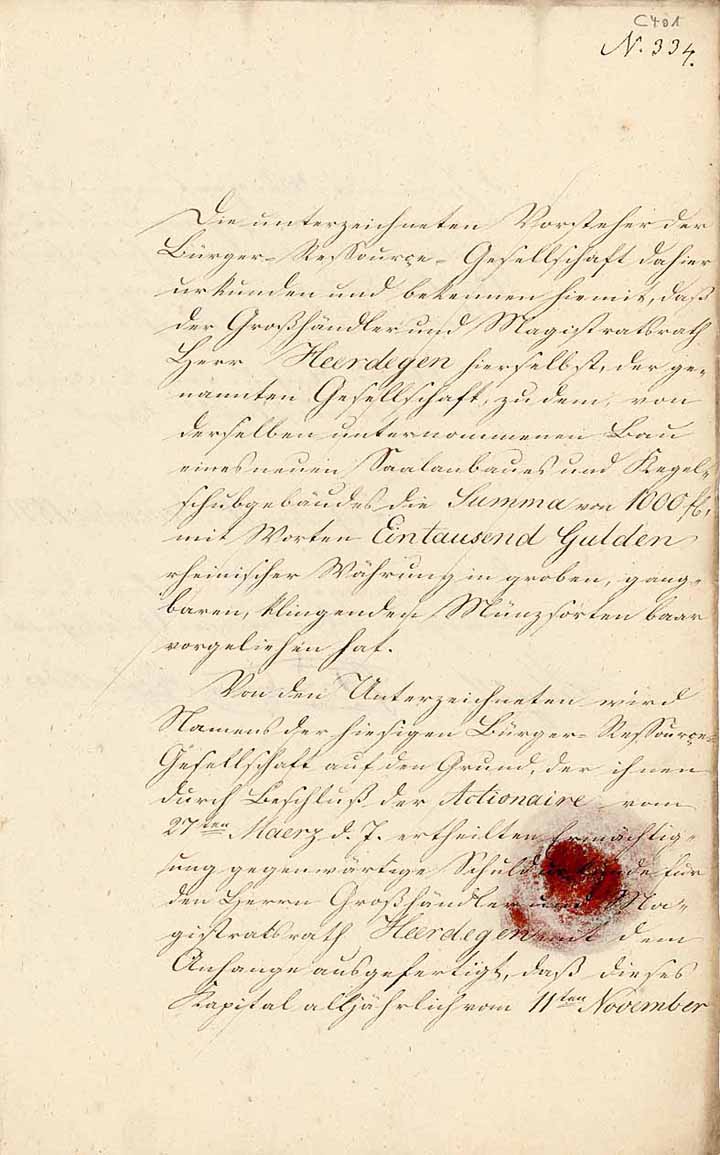 C401
N. 334.
Die unterzeichneten Vorsteher der
Bürger-Ressource-Gesellschaft dahier
urkunden und bekennen hiemit, daß
der Großhändler und Magistratsrath
Herr Heerdegen hierselbst, der ge-
nannten Gesellschaft, zu dem, von
derselben unternommenen Bau
eines neuen Saalanbaues und Kegel-
schubgebäudes die Summa von 1000 fl.,
mit Worten Eintausend Gulden
rheinischer Währung in groben, gang-
baren, klingenden Münzsorten baar
vorgeliehen hat.
Von den Unterzeichneten wird
Namens der hiesigen Bürger-Ressource-
Gesellschaft auf den Grund, der ihnen
durch Beschluß der Actionaire vom
27ten Maerz d. J. ertheilten Ermächtig-
ung gegenwärtige Schuldurkunde für
den Herrn Großhändler und Ma-
gistratsrath Heerdegen mit dem
Anhange ausgefertigt, daß dieses
Kapital alljährlich vom 11ten November